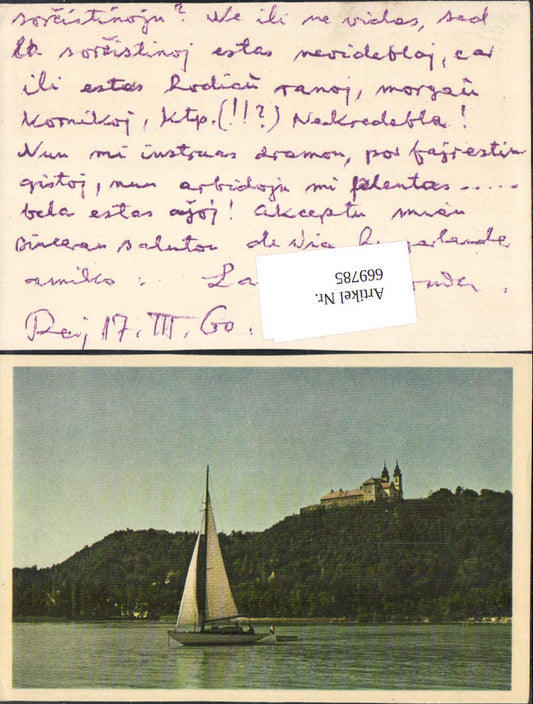 sorĉistinoju? Ne ili ne vidas, sed
la sorĉistinoj estas nevideblaj, car
ili estas hodiaŭ ranoj, morgaŭ
kornikoj, ktp. (!!?) Nekredebla!
Nun mi instruas dramon, por fajrestin
gistoj, nun arbidojn mi plantas.....
bela estas ajoj! Akceptu mian
sinceran saluton de via
amiko:
Pécs 17. III. 60.
Artikel Nr.
669785